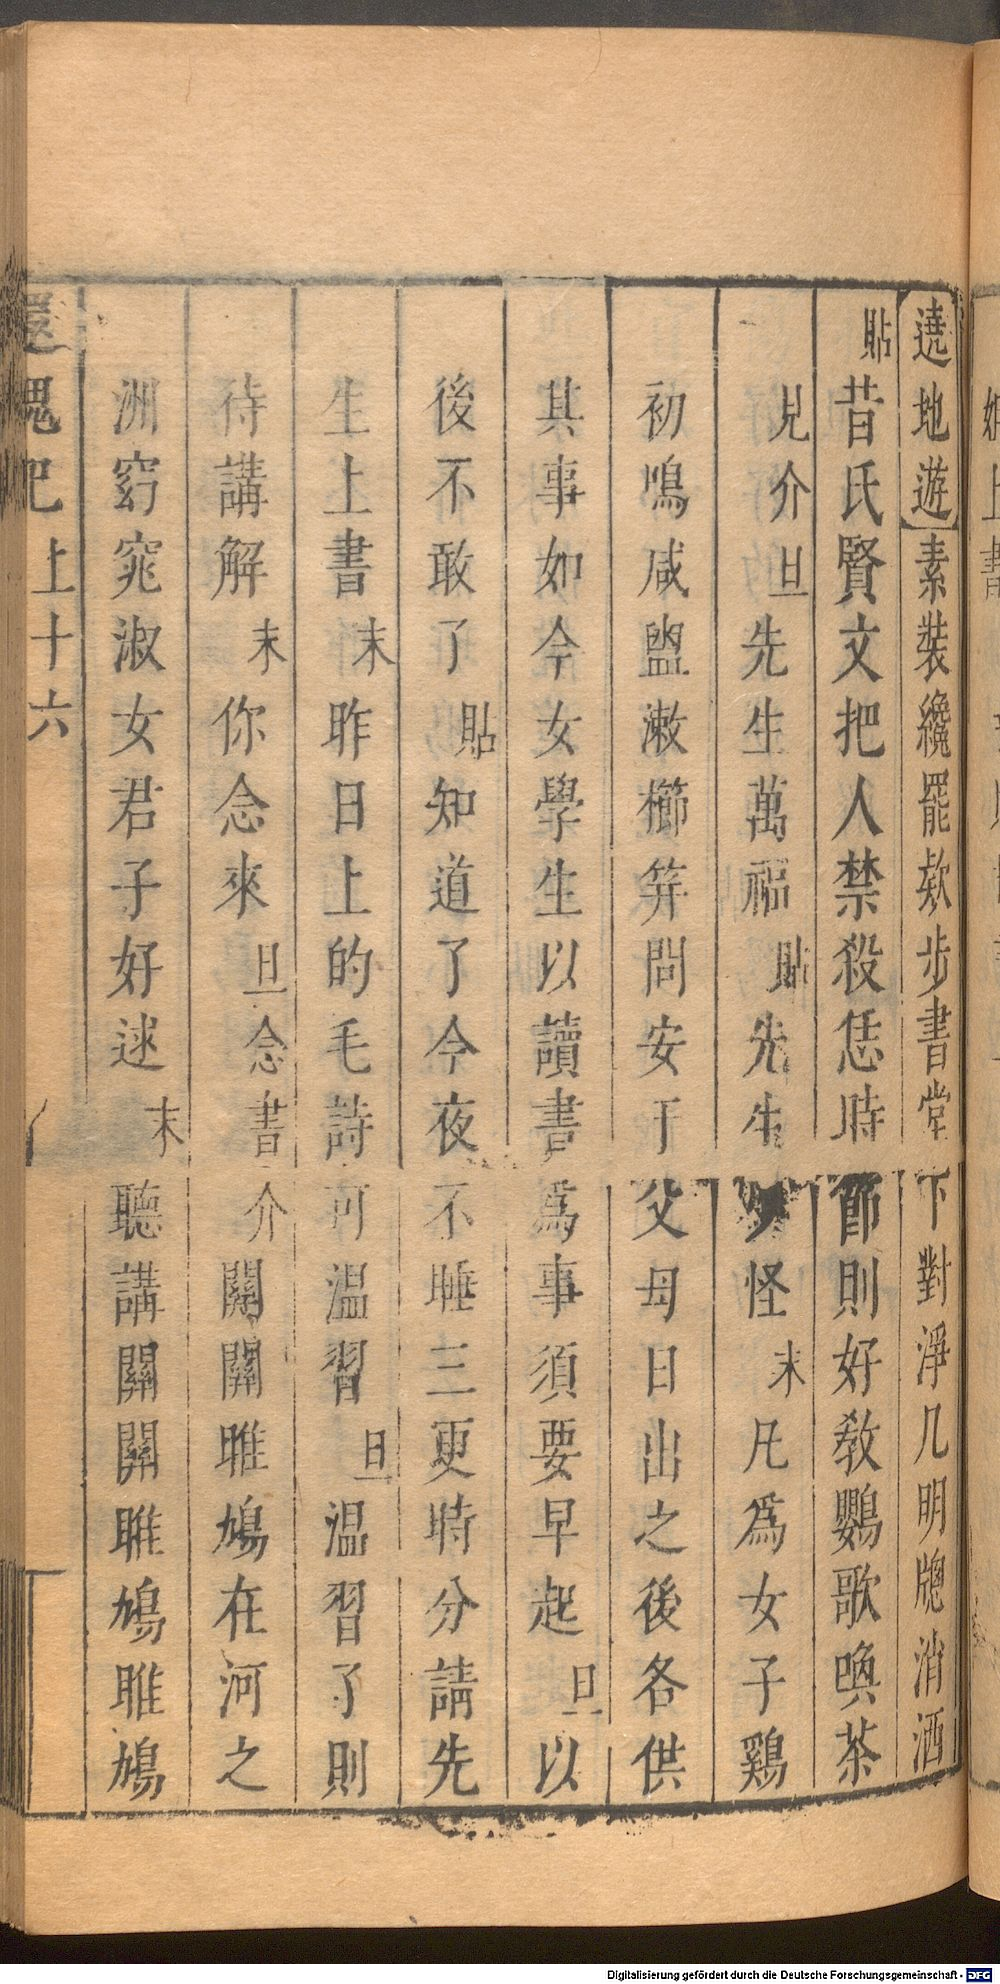 遶地遊素裝纔罷欸步書堂下對淨几明牕消洒
貼昔氏賢文把人禁殺恁時節則好教鸚歌喚茶
見介旦先生萬福貼先生少怪末凡為女子鷄
初鳴咸盥漱櫛笄問安于父母日出之後各供
其事如今女學生以讀書為事須要早起旦以
後不敢了貼知道了今夜不睡三更時分請先
生上書末昨日上的毛詩可溫習旦溫習了則
待講解末你念來旦念書介關關雎鳩在河之
洲窈窕淑女君子好逑末聽講關關雎鳩雎鳩
還魂記上十六
Digitalisierung gefördert durch die Deutsche Forschungsgemeinschaft - DFG